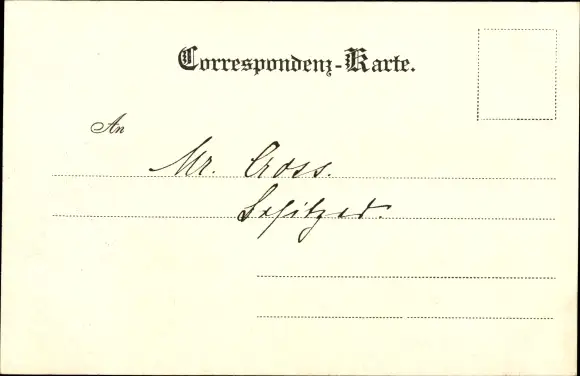 Correspondenz-Karte.
An
Mr. Cross.
Besitzer.